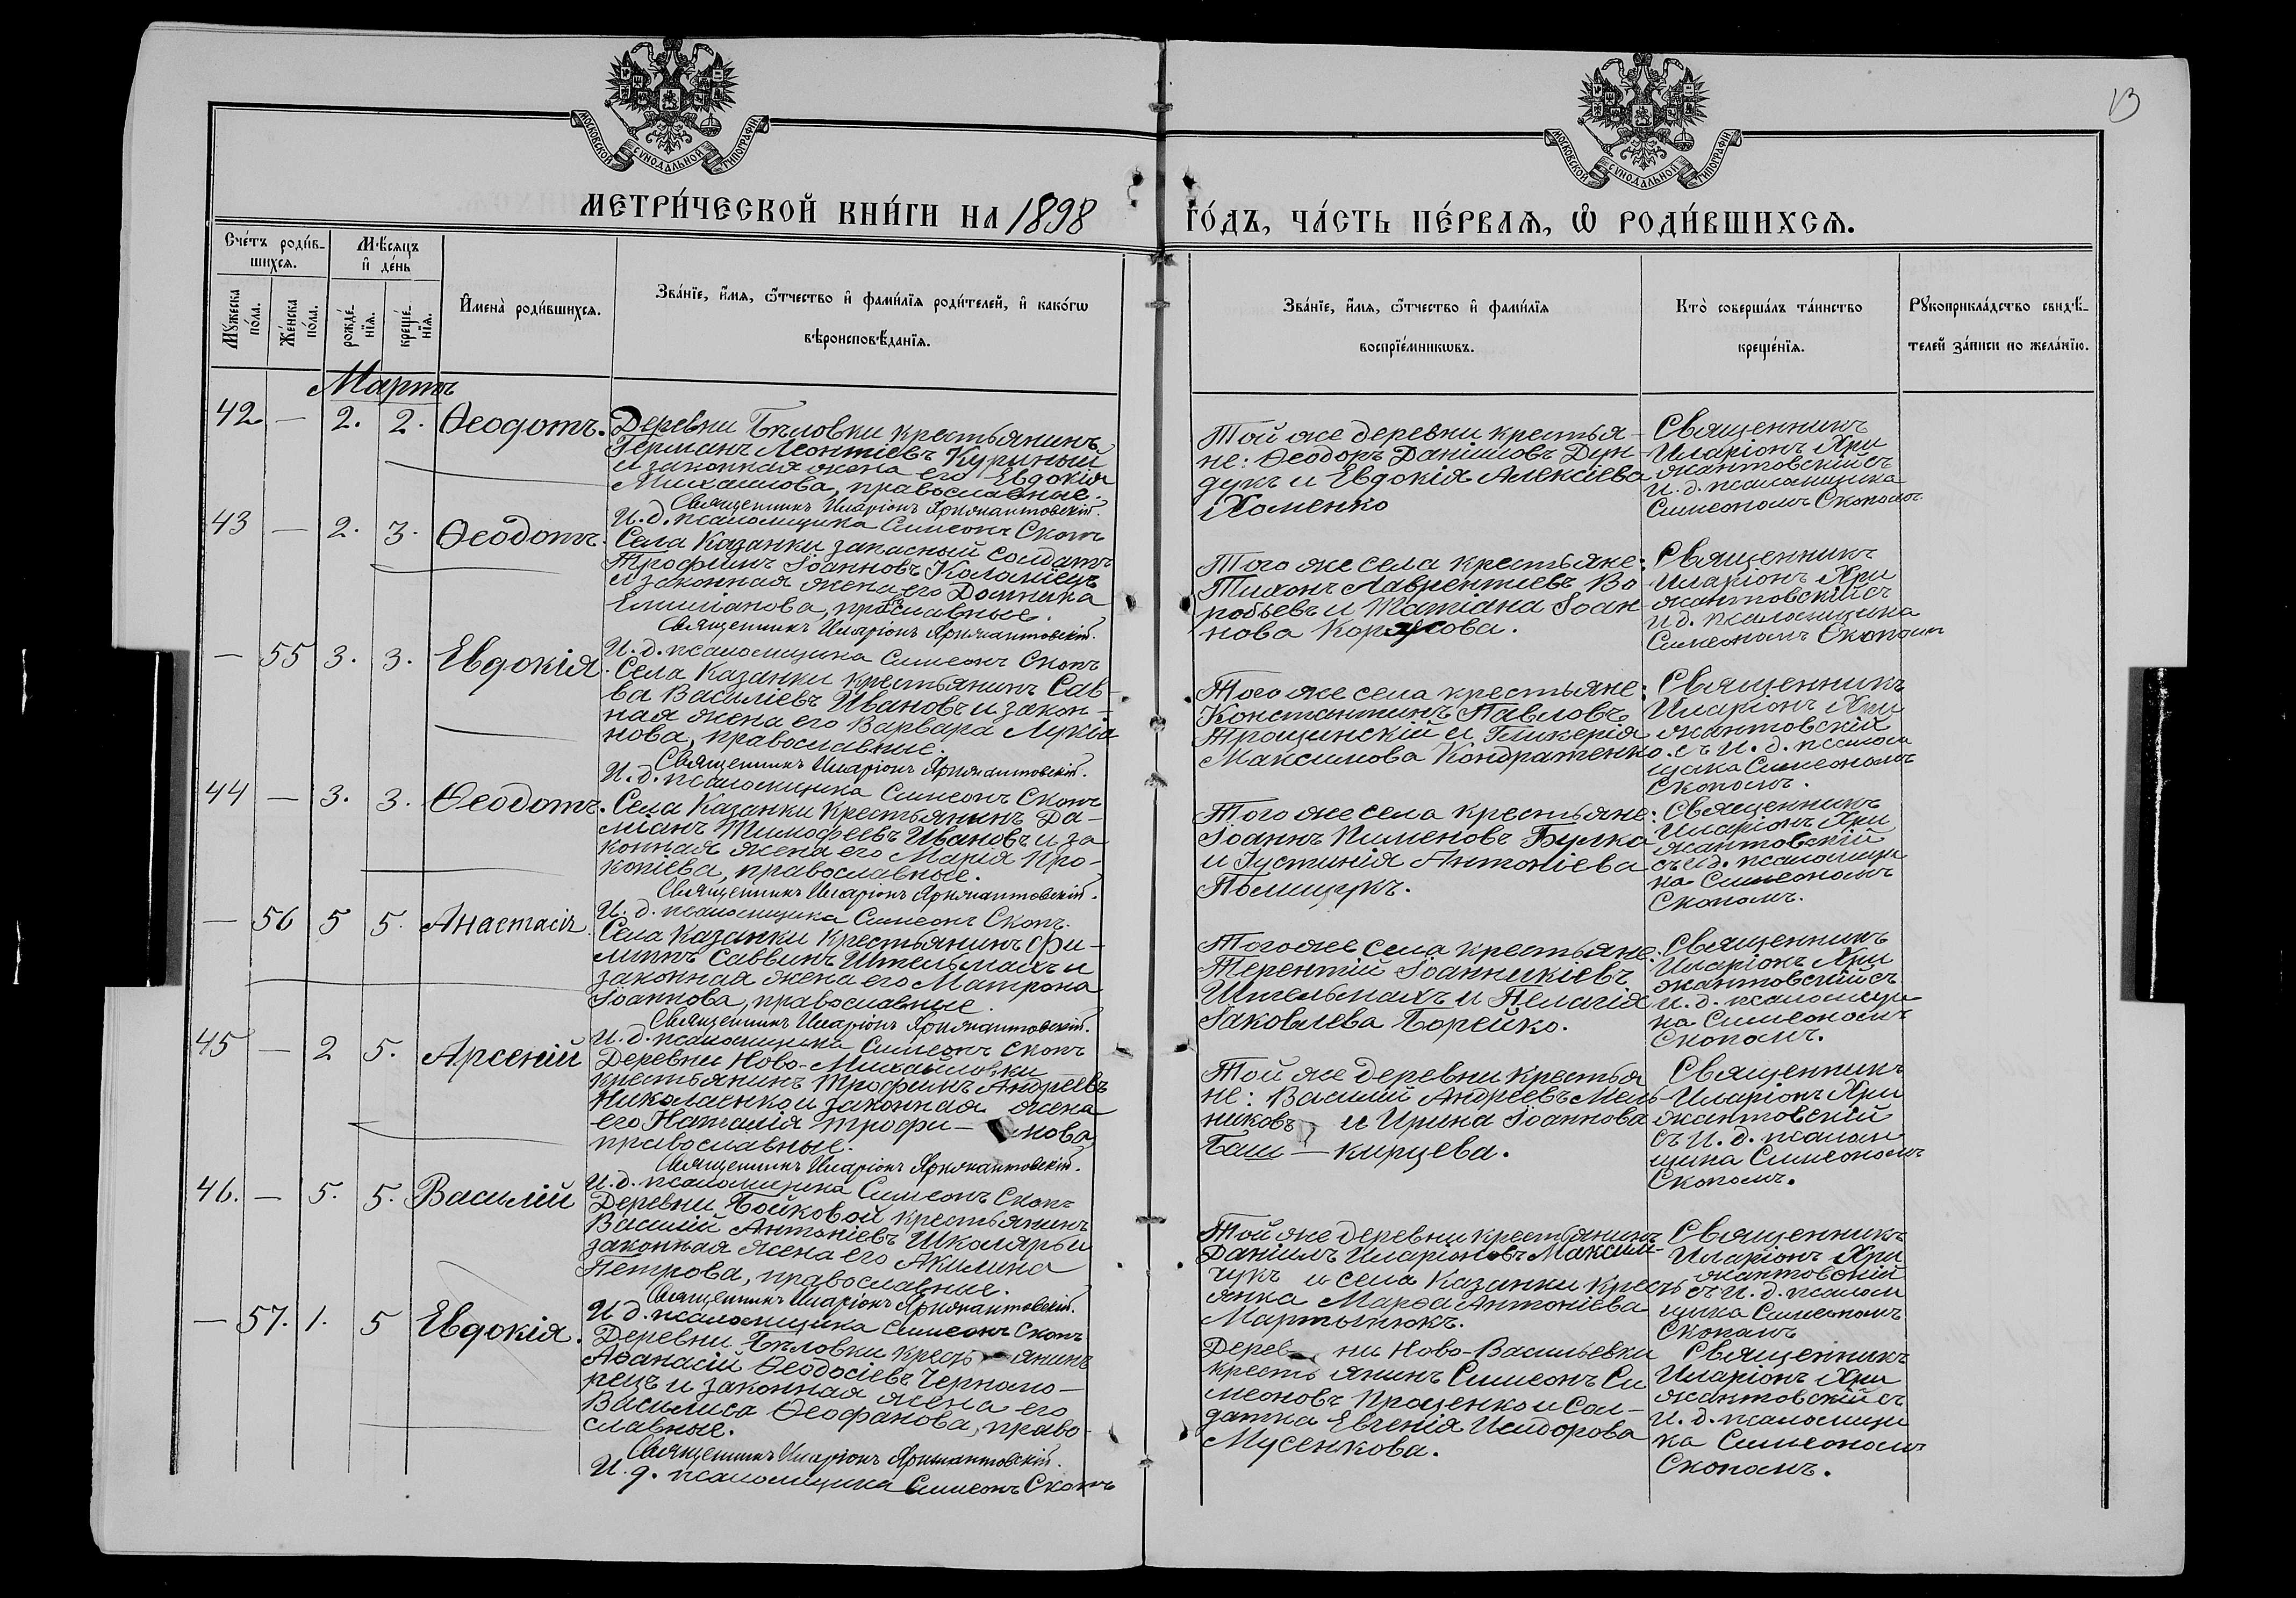 13
МОСКОВСКОЙ СУНОДАЛЬНОЙ ТИПОГРАФІИ
МОСКОВСКОЙ СУНОДАЛЬНОЙ ТИПОГРАФІИ
МЕТРИ́ЧЕСКОЙ КНИ́ГИ НА 1898 ГО́ДЪ, ЧА́СТЬ ПЕ́РВАѦ, Ѿ РОДИ́ВШИХСѦ.
Сче́тъ роди́в-
шихсѧ.
Мѣ́сяцъ
и҆ де́нь
Мꙋ́жеска
по́ла.
Же́нска
по́ла.
рожде́-
нїѧ.
креще́-
нїѧ.
И҆мена̀ роди́вшихсѧ.
Зва́нїе, и҆́мѧ, ѻ҆́тчество и҆ фами́лїѧ роди́телей, и҆ како́гѡ
вѣроисповѣ́данїѧ.
Зва́нїе, и҆́мѧ, ѻ҆́тчество и҆ фами́лїѧ
воспрїе́мникѡвъ.
Кто̀ соверша́лъ та́инство
креще́нїѧ.
Рꙋкоприкла́дство свидѣ́-
телей за́писи по жела́нїю.
Мартъ
42 — 2. 2. Ѳеодотъ.
Деревни Бѣловки крестьянинъ
Германъ Леонтіевъ Куриный
и законная жена его Евдокія
Михаилова, православные.
Священникъ Иларіонъ Крижантовскій.
И. д. псаломщика Симеонъ Скопъ
Той же деревни крестья-
не: Ѳеодоръ Даніиловъ Дун-
дукъ и Евдокія Алексіева
Хоменко
Священникъ
Иларіонъ Кри
жантовскій съ
И. д. псаломщика
Симеономъ Скопомъ
43 — 2. 3. Ѳеодотъ.
Села Казанки запасный солдатъ
Трофимъ Іоанновъ Коломіецъ
и законная жена его Домника
Емиліанова, православные.
Священникъ Иларіонъ Крижантовскій.
И. д. псаломщика Симеонъ Скопъ
Того же села крестьяне:
Тихонъ Лаврентіевъ Во
робьевъ и Татіана Іоан-
нова Корсова.
Священникъ
Иларіонъ Кри
жантовскій съ
И д. псаломщика
Симеономъ Скопомъ
— 55 3. 3. Евдокія.
Села Казанки крестьянинъ Сав-
ва Василіевъ Ивановъ и закон-
ная жена его Варвара Лукіа
нова, православные.
Священникъ Иларіонъ Крижантовскій.
И. д. псаломщика Симеонъ Скопъ
Того же села крестьяне:
Константинъ Павловъ
Трощинскій и Гликерія
Максимова Кондратенко.
Священникъ
Иларіонъ Кри
жантовскій
съ И. д. псалом
щика Симеономъ
Скопомъ.
44 — 3. 3. Ѳеодотъ.
Села Казанки крестьянинъ Да-
міанъ Тимофеевъ Ивановъ и за
конная жена его Марія Про-
копіева, православные.
Священникъ Иларіонъ Крижантовскій.
И. д. псаломщика Симеонъ Скопъ.
Того же села крестьяне:
Іоаннъ Пименовъ Булко
и Іустинія Антоніева
Полищукъ.
Священникъ
Иларіонъ Кри
жантовскій
съ И д. псаломщи
ка Симеономъ
Скопомъ.
— 56 5 5. Анастасія.
Села Казанки крестьянинъ Фи-
липпъ Саввинъ Штельмахъ и
законная жена его Матрона
Іоаннова, православные.
Священникъ Иларіонъ Крижантовскій.
И. д. псаломщика Симеонъ Скопъ
Того же села крестьяне:
Терентій Іоанникіевъ
Штельмахъ и Пелагія
Іаковлева Борейко.
Священникъ
Иларіонъ Кри
жантовскій съ
И. д. псаломщи
ка Симеономъ
Скопомъ.
45 — 2 5. Арсеній
Деревни Ново-Михайловки
крестьянинъ Трофимъ Андреевъ
Николаенко и законная жена
его Наталія Трофи- мова
православные.
Священникъ Иларіонъ Крижантовскій.
И. д. псаломщика Симеонъ Скопъ
Той же деревни крестья
не: Василій Андреевъ Мель-
никовъ и Ирина Іоаннова
Баш — кирцева.
Священникъ
Иларіонъ Кри
жантовскій
съ И. д. псалом
щика Симеономъ
Скопомъ.
46. — 5. 5. Василій
Деревни Бойковой крестьянинъ
Василій Антоніевъ Школяръ и
законная жена его Акилина
Петрова, православные.
Священникъ Иларіонъ Крижантовскій.
И д. псаломщика Симеонъ Скопъ
Той же деревни крестьянинъ
Даніилъ Иларіоновъ Максим-
чукъ и села Казанки кресть
янка Марѳа Антоніева
Мартынюкъ.
Священникъ
Иларіонъ Кри
жантовскій
съ И. д. псалом
щика Симеономъ
Скопомъ
— 57. 1. 5 Евдокія.
Деревни Бѣловки кресть янинъ
Аѳанасій Ѳеодосіевъ Черномо-
рецъ и законная жена его
Василиса Ѳеофанова, право-
славные.
Священникъ Иларіонъ Крижантовскій.
И. д. псаломщика Симеонъ Скопъ
Дерев ни Ново-Васильевки
кресть янинъ Симеонъ Си
меоновъ Проценко и Сол-
датка Евгенія Исидорова
Мусенкова.
Священникъ
Иларіонъ Кри
жантовскій съ
И. д. псаломщи
ка Симеономъ
Скопомъ.